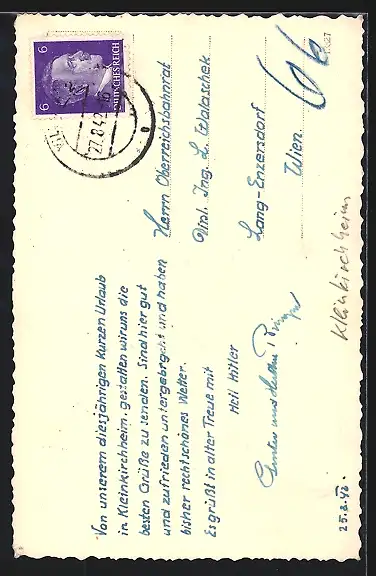 Von unserem diesjährigen kurzen Urlaub
in Kleinkirchheim, gestatten wir uns die
besten Grüße zu senden. Sind hier gut
und zufrieden untergebracht und haben
bisher recht schönes Wetter.
Es grüßt in alter Treue mit
Heil Hitler
25.8.42.
6
6
DEUTSCHES REICH
27.8.42
Herrn Oberreichsbahnrat
Dipl. Ing. L. Walaschek
Lang-Enzersdorf
Wien
Kleinkirchheim